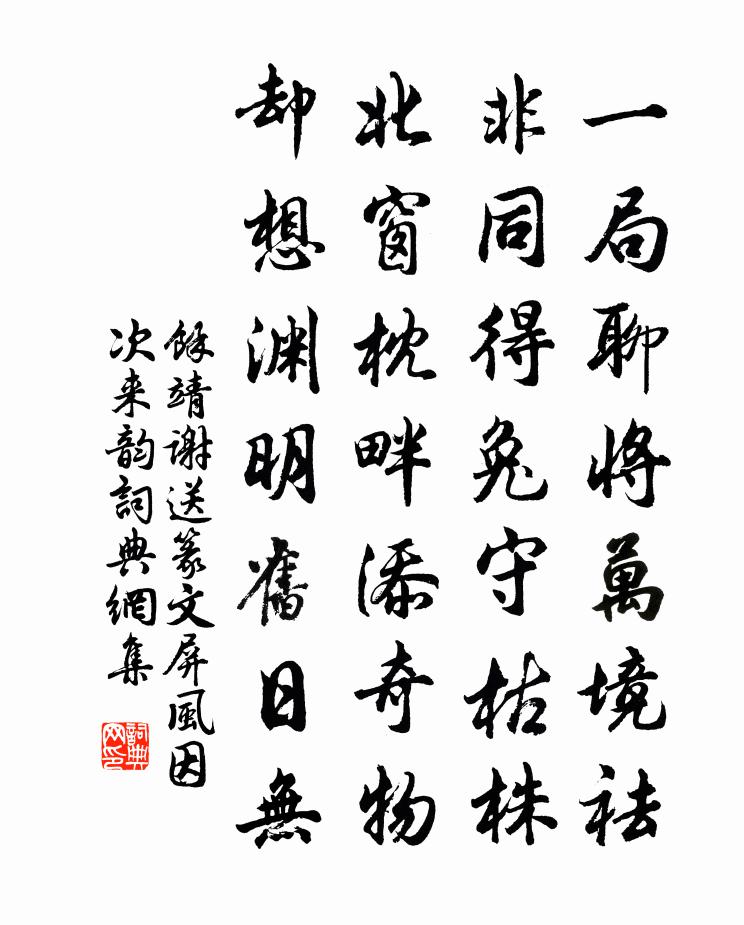 一局聊將萬境祛
非同得兔守枯株
北窗枕畔添奇物
却想渊明舊日無
餘靖谢送篆文屏風因
次来韵詞典網集
詞典网印